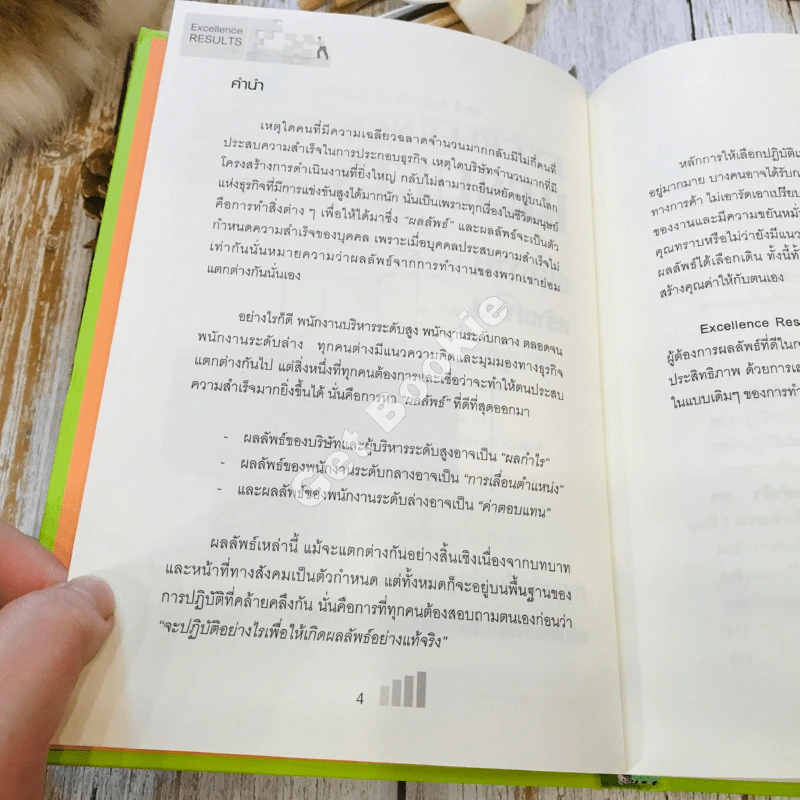 Excellence
RESULTS
คำนำ
เหตุใดคนที่มีความเฉลียวฉลาดจำนวนมากกลับมีไม่กี่คนที่
ประสบความสำเร็จในการประกอบธุรกิจ เหตุใดบริษัทจำนวนมากที่มี
โครงสร้างการดำเนินงานที่ยิ่งใหญ่ กลับไม่สามารถยืนหยัดอยู่บนโลก
แห่งธุรกิจที่มีการแข่งขันสูงได้มากนัก นั่นเป็นเพราะทุกเรื่องในชีวิตมนุษย์
คือการทำสิ่งต่าง ๆ เพื่อให้ได้มาซึ่ง "ผลลัพธ์" และผลลัพธ์จะเป็นตัว
กำหนดความสำเร็จของบุคคล เพราะเมื่อบุคคลประสบความสำเร็จไม่
เท่ากันนั่นหมายความว่าผลลัพธ์จากการทำงานของพวกเขาย่อม
แตกต่างกันนั่นเอง
อย่างไรก็ดี พนักงานบริหารระดับสูง พนักงานระดับกลาง ตลอดจน
พนักงานระดับล่าง ทุกคนต่างมีแนวความคิดและมุมมองทางธุรกิจ
แตกต่างกันไป แต่สิ่งหนึ่งที่ทุกคนต้องการและเชื่อว่าจะทำให้ตนประสบ
ความสำเร็จมากยิ่งขึ้นได้ นั่นคือการหา "ผลลัพธ์" ที่ดีที่สุดออกมา
- ผลลัพธ์ของบริษัทและผู้บริหารระดับสูงอาจเป็น "ผลกำไร"
- ผลลัพธ์ของพนักงานระดับกลางอาจเป็น "การเลื่อนตำแหน่ง"
- และผลลัพธ์ของพนักงานระดับล่างอาจเป็น "ค่าตอบแทน"
ผลลัพธ์เหล่านี้ แม้จะแตกต่างกันอย่างสิ้นเชิงเนื่องจากบทบาท
และหน้าที่ทางสังคมเป็นตัวกำหนด แต่ทั้งหมดก็จะอยู่บนพื้นฐานของ
การปฏิบัติที่คล้ายคลึงกัน นั่นคือการที่ทุกคนต้องสอบถามตนเองก่อนว่า
"จะปฏิบัติอย่างไรเพื่อให้เกิดผลลัพธ์อย่างแท้จริง"
4
หลักการให้เลือกปฏิบัติ
อยู่มากมาย บางคนอาจได้รับ
ทางการค้า ไม่เอารัดเอาเปรียบ
ของงานและมีความขยันหมั่
คุณทราบหรือไม่ว่ายังมีแนว
ผลลัพธ์ได้เลือกเดิน ทั้งนี้
สร้างคุณค่าให้กับตนเอง
Excellence Res
ผู้ต้องการผลลัพธ์ที่ดีใน
ประสิทธิภาพ ด้วยการ
ในแบบเดิมๆ ของการทำ
Get Bookie